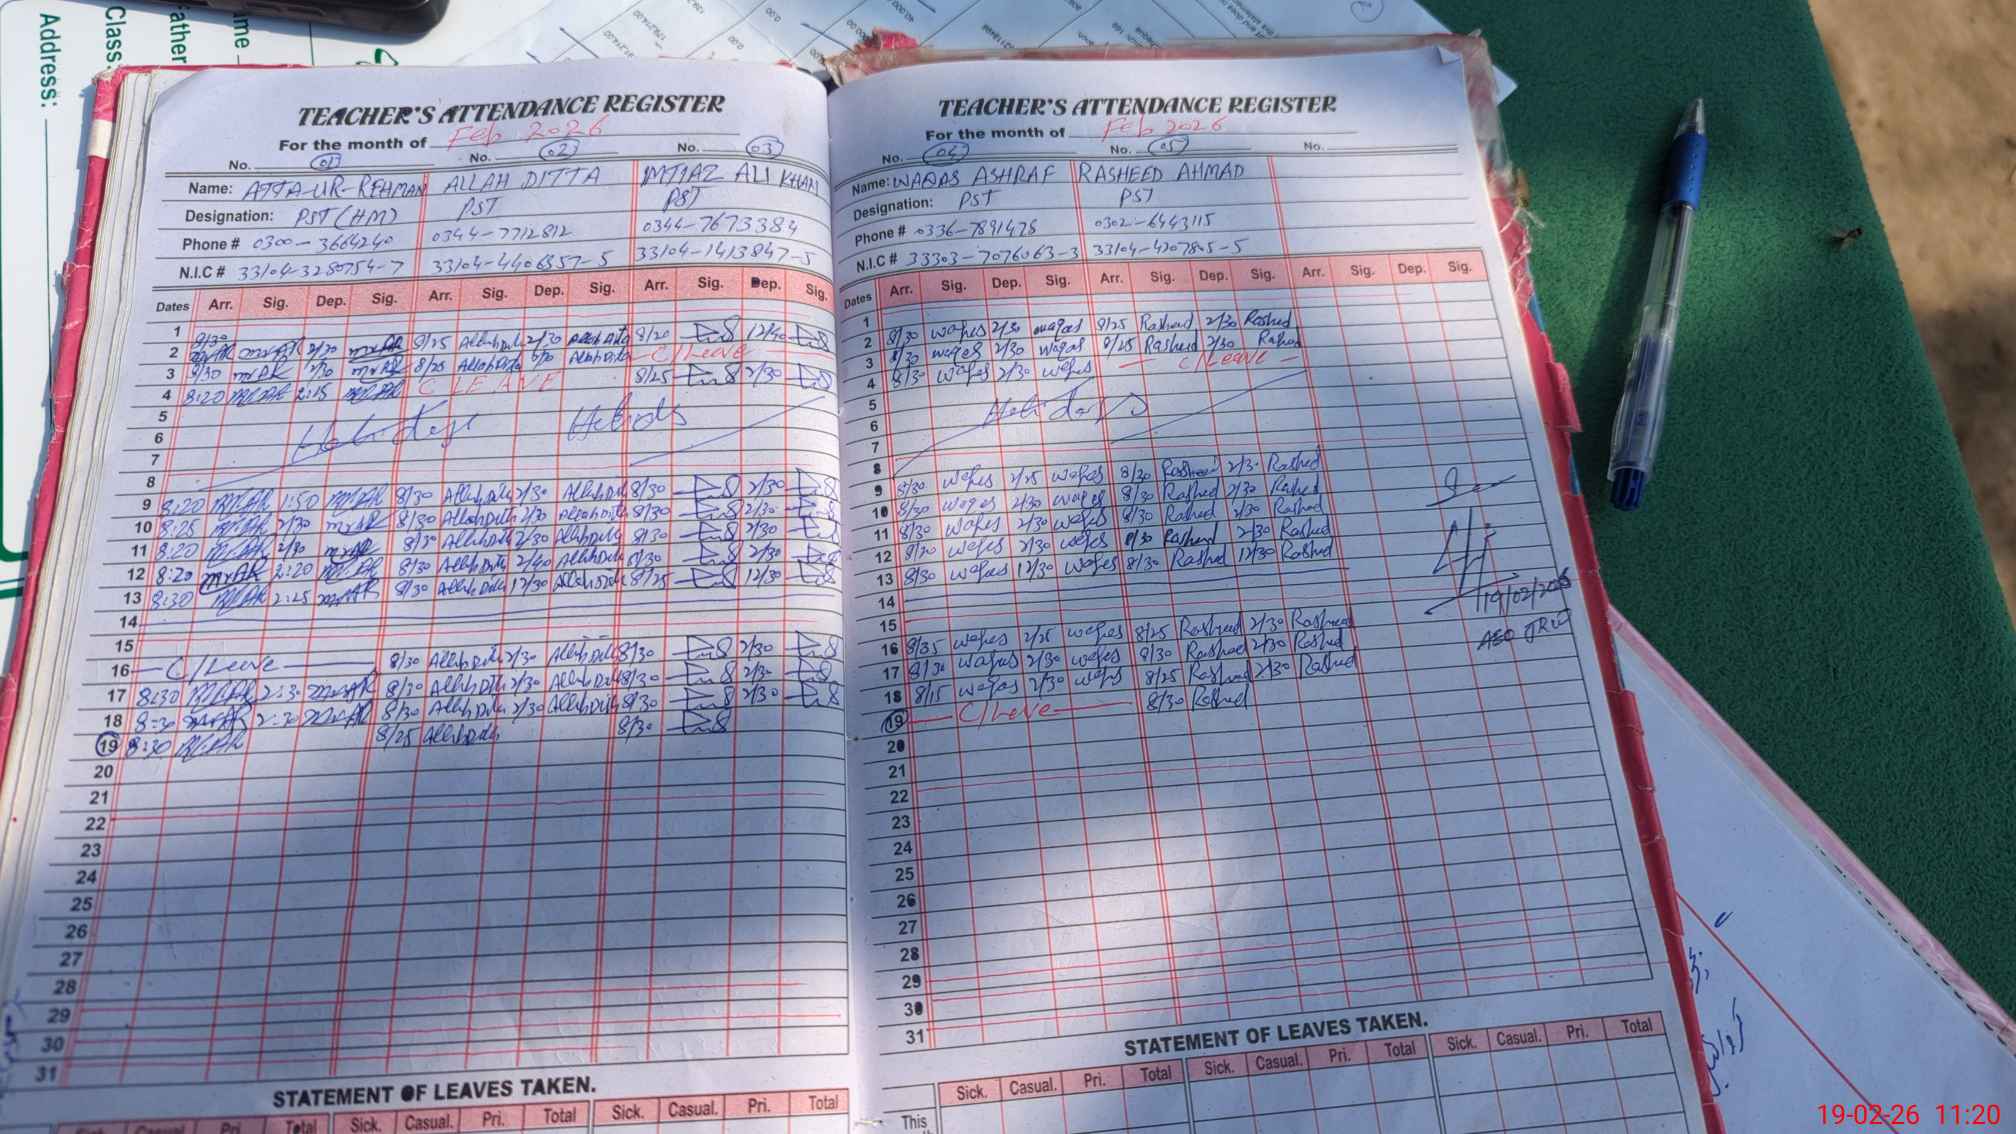 Address:
Class
Father
me
TEACHER'S ATTENDANCE REGISTER
For the month of Feb 2026
No. 01 No. 02 No. 03
Name: ATTA-UR-REHMAN ALLAH DITTA IMTIAZ ALI KHAN
Designation: PST (HM) PST PST
Phone # 0300-3664240 0344-7712812 0344-7673384
N.I.C # 33104-3280754-7 33104-4406357-5 33104-1413847-5
Dates Arr. Sig. Dep. Sig. Arr. Sig. Dep. Sig. Arr. Sig. Dep. Sig.
1
2 9/25 Allah Ditta 2/30 Allah Ditta 8/20 12/40
3 8/30 2/30 8/25 Allah Ditta Allah Ditta C/Leave
4 8:20 2:15 C LEAVE 8/25 2/30
5
6 Holidays Holidays
7
8
9 8:20 1:50 8/30 Allah Ditta 2/30 Allah Ditta 8/30 2/30
10 8:25 2/30 8/30 Allah Ditta 2/30 Allah Ditta 8/30 2/30
11 8:20 2/30 8/30 Allah Ditta 2/30 Allah Ditta 8/30 2/30
12 8:20 2:20 8/30 Allah Ditta 2/40 Allah Ditta 8/30 2/30
13 8:30 2:25 8/30 Allah Ditta 12/30 Allah Ditta 8/25 12/30
14
15
16 C/Leave 8/30 Allah Ditta 2/30 Allah Ditta 8/30 2/30
17 8:30 2:30 8/30 Allah Ditta 2/30 Allah Ditta 8/30 2/30
18 8:30 2:30 8/30 Allah Ditta 2/30 Allah Ditta 8/30 2/30
19 8:30 8/25 Allah Ditta 8/30
20
21
22
23
24
25
26
27
28
29
30
31
STATEMENT OF LEAVES TAKEN.
Sick. Casual. Pri. Total Sick. Casual. Pri. Total Sick. Casual. Pri. Total
TEACHER'S ATTENDANCE REGISTER
For the month of Feb 2026
No. 04 No. 05 No.
Name: WAQAS ASHRAF RASHEED AHMAD
Designation: PST PST
Phone # 0336-7891478 0302-6443115
N.I.C # 33303-7076063-3 33104-4207805-5
Dates Arr. Sig. Dep. Sig. Arr. Sig. Dep. Sig. Arr. Sig. Dep. Sig.
1
2 8/30 waqas 2/30 waqas 8/25 Rashed 2/30 Rashed
3 8/30 waqas 2/30 waqas 8/25 Rashed 2/30 Rashed
4 8/30 waqas 2/30 waqas C/Leave
5
6 Holidays
7
8
9 8/30 waqas 2/25 waqas 8/30 Rashed 2/30 Rashed
10 8/30 waqas 2/30 waqas 8/30 Rashed 2/30 Rashed
11 8/30 waqas 2/30 waqas 8/30 Rashed 2/30 Rashed
12 8/30 waqas 2/30 waqas 8/30 Rashed 2/30 Rashed
13 8/30 waqas 12/30 waqas 8/30 Rashed 12/30 Rashed
14
15
16 8/35 waqas 2/25 waqas 8/25 Rashed 2/30 Rashed
17 8/30 waqas 2/30 waqas 8/30 Rashed 2/30 Rashed
18 8/15 waqas 2/30 waqas 8/25 Rashed 2/30 Rashed
19 C/Leve 8/30 Rashed
20
21
22
23
24
25
26
27
28
29
30
31
19/02/2026
AEO
STATEMENT OF LEAVES TAKEN.
Sick. Casual. Pri. Total Sick. Casual. Pri. Total Sick. Casual. Pri. Total
This
19-02-26 11:20